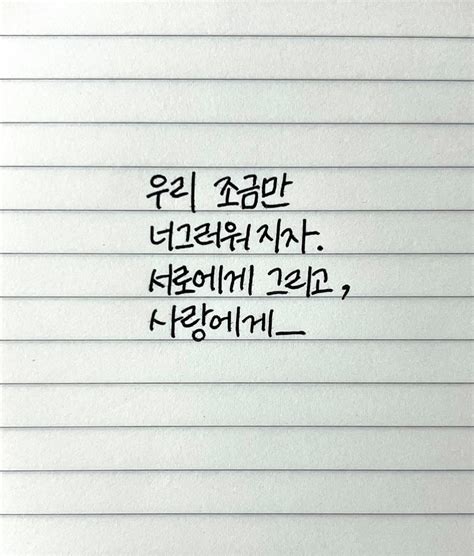 우리 조금만
너그러워지자.
서로에게 그리고,
사랑에게_